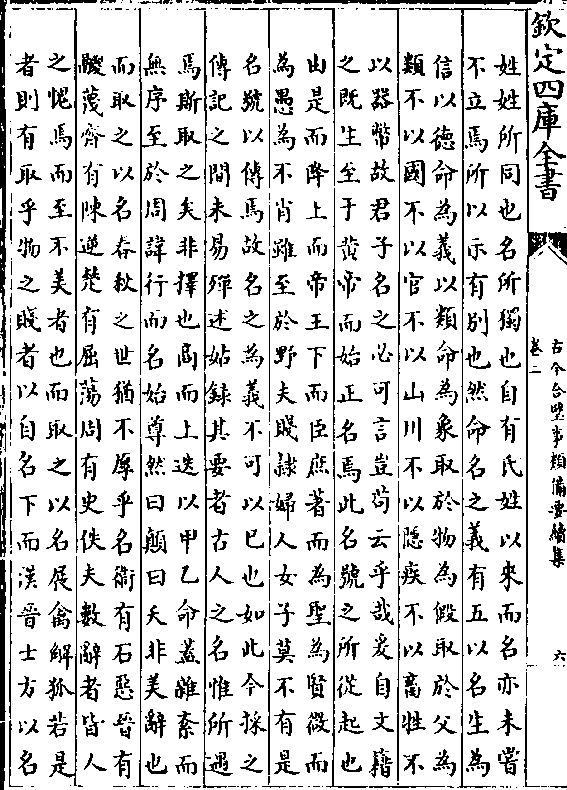 欽定四庫全書
古今合璧事類備要續集
卷二
六
姓姓所同也名所獨也自有氏姓以來而名亦未嘗
不立焉所以示有別也然命名之義有五以名生為
信以德命為義以類命為象取於物為假取於父為
類不以國不以官不以山川不以隱疾不以畜牲不
以器幣故君子名之必可言豈苟云乎哉爰自文籍
之既生至于黄帝而始正名焉此名號之所從起也
由是而降上而帝王下而臣庶著而為聖為賢微而
為愚為不肖雖至於野夫賤隸婦人女子莫不有是
名號以傳焉故名之為義不可以已也如此今採之
傳記之間未易殫述姑錄其要者古人之名惟所遇
焉斯取之矣非擇也商而上迭以甲乙命蓋雖紊而
無序至於周諱行而名始尊然曰顛曰夭非美辭也
而取之以名春秋之世猶不厚乎名衛有石惡晉有
鬷蔑齊有陳逆楚有屈蕩周有史佚夫數辭者皆人
之愧焉而至不美者也而取之以名展禽解狐若是
者則有取乎物之賤者以自名下而漢晉士方以名